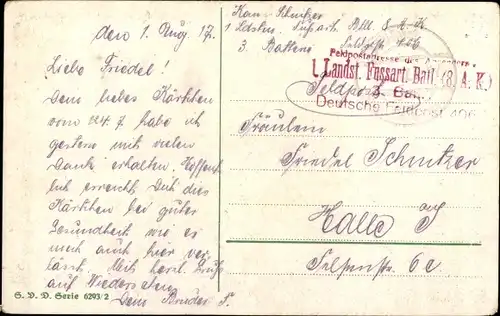 den 1. Aug. 17.
Liebe Friedel!
Dein liebes Kärtchen
vom 24.7 habe ich
gestern mit vielen
Dank erhalten. Hoffent
lich erreicht Dich dies
Kärtchen bei guter
Gesundheit wie es
mich auch hier ver
lässt. Mit herzl. Gruß
auf Wiedersehen
Dein Bruder F.
S. V. D. Serie 6293/2
Kan. Schnitzer
1 Ldstm. Fuß art. Btl. 8. A. K
3. Batterie
Feldpost 406
Feldpostadresse des Absenders
1. Landst. Fussart. Batl. (8. A. K.)
3. Bat.
Deutsche Feldpost 406
Feldpost
Fräulein
Friedel Schnitzer
Halle a/S